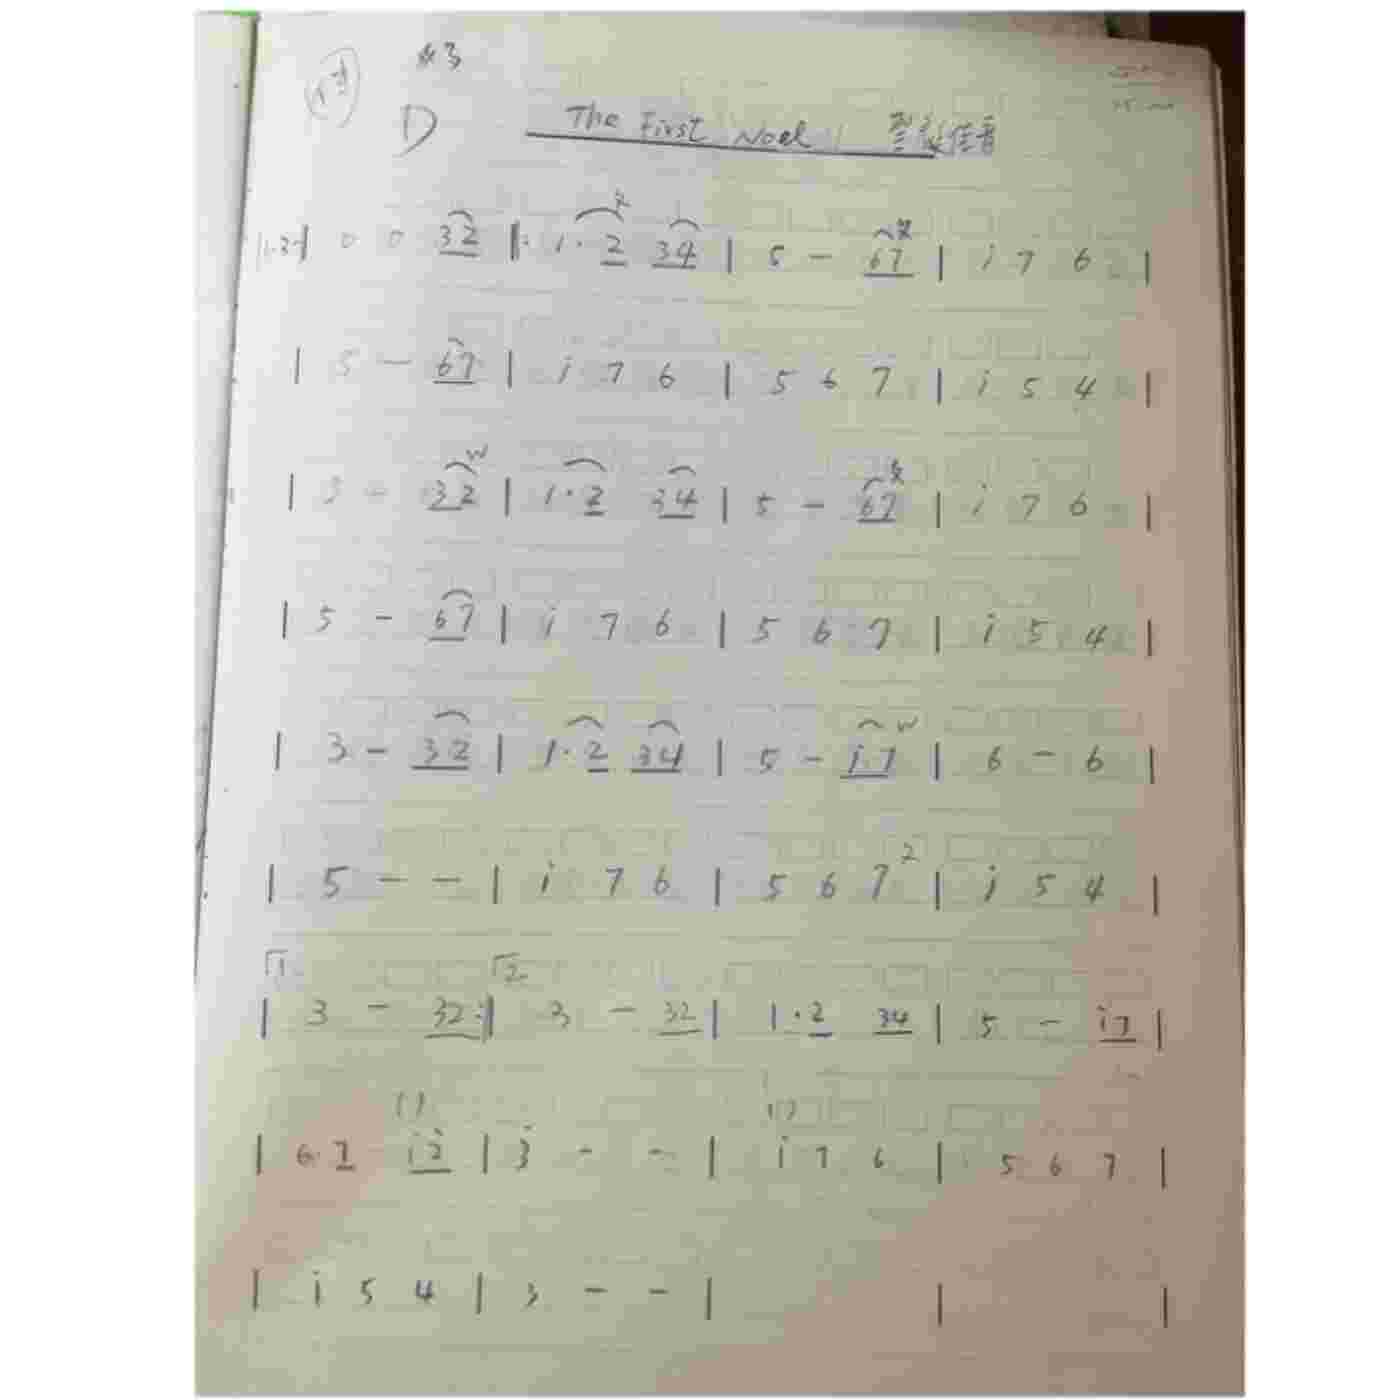 #3
D The First Noel 聖誕佳音
0 0 32 |: 1·2 34 | 5 - 67 | i 7 6 |
| 5 - 67 | i 7 6 | 5 6 7 | i 5 4 |
| 3 - 32 | 1·2 34 | 5 - 67 | i 7 6 |
| 5 - 67 | i 7 6 | 5 6 7 | i 5 4 |
| 3 - 32 | 1·2 34 | 5 - i7 | 6 - 6 |
| 5 - - | i 7 6 | 5 6 7 2 | i 5 4 |
1. 2.
| 3 - 32 :| 3 - 32 | 1·2 34 | 5 - i7 |
( ) ( )
| 6·7 i2̇ | 3̇ - - | i 7 6 | 5 6 7 |
| i 5 4 | 3 - - | | |